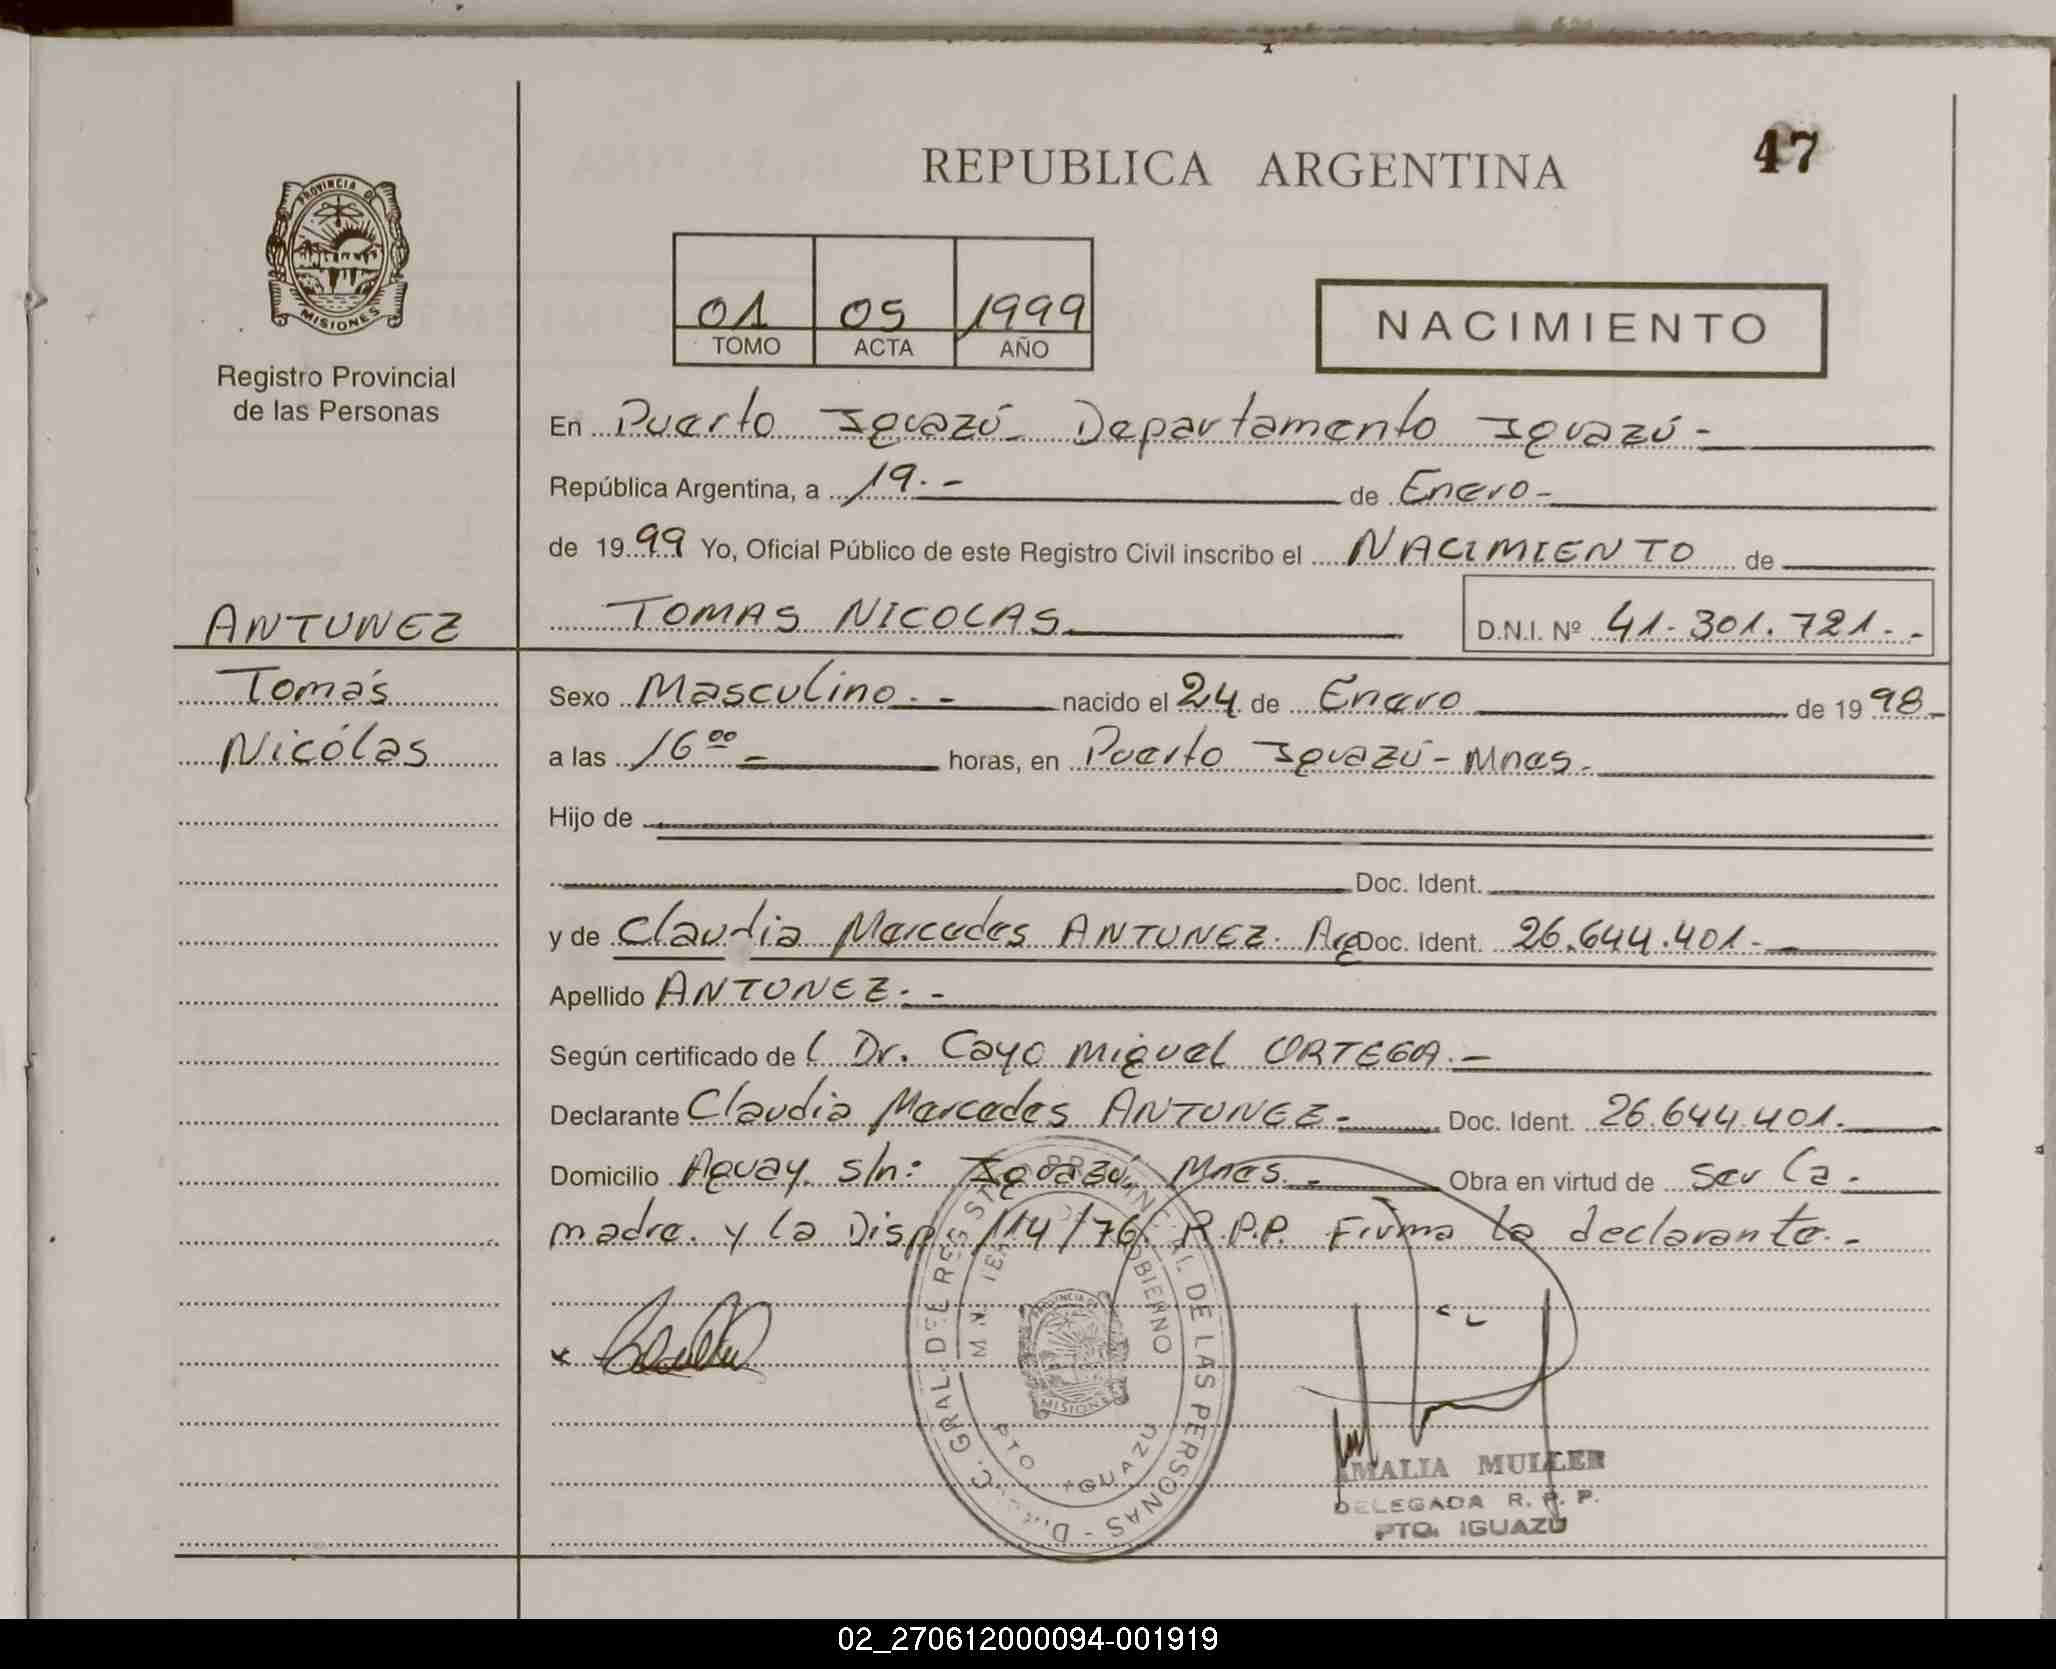 47
REPUBLICA ARGENTINA
PROVINCIA DE
MISIONES
Registro Provincial
de las Personas
01 05 1999
TOMO ACTA AÑO
NACIMIENTO
En Puerto Iguazú - Departamento Iguazú -
República Argentina, a 19.- de Enero -
de 1999 Yo, Oficial Público de este Registro Civil inscribo el NACIMIENTO de
ANTUNEZ
TOMAS NICOLAS
D.N.I. Nº 41.301.721.-
Tomás
Nicólas
Sexo Masculino.- nacido el 24 de Enero de 1998
a las 16 00 horas, en Puerto Iguazú - Mnes.
Hijo de
Doc. Ident.
y de Claudia Mercedes ANTUNEZ. Arg Doc. Ident. 26.644.401.-
Apellido ANTUNEZ.-
Según certificado de l Dr. Cayo Miguel ORTEGA.-
Declarante Claudia Mercedes ANTUNEZ.- Doc. Ident. 26.644.401.
Domicilio Aguay s/n: Iguazú, Mnes.- Obra en virtud de ser la.
madre. y la Disp. 114/76 R.P.P. Firma la declarante.-
GRAL. DE
PROVINCIAL DE LAS PERSONAS
GOBIERNO
MISIONES
PTO IGUAZU
AMALIA MULLER
DELEGADA R. P. P.
PTO. IGUAZU
02_270612000094-001919